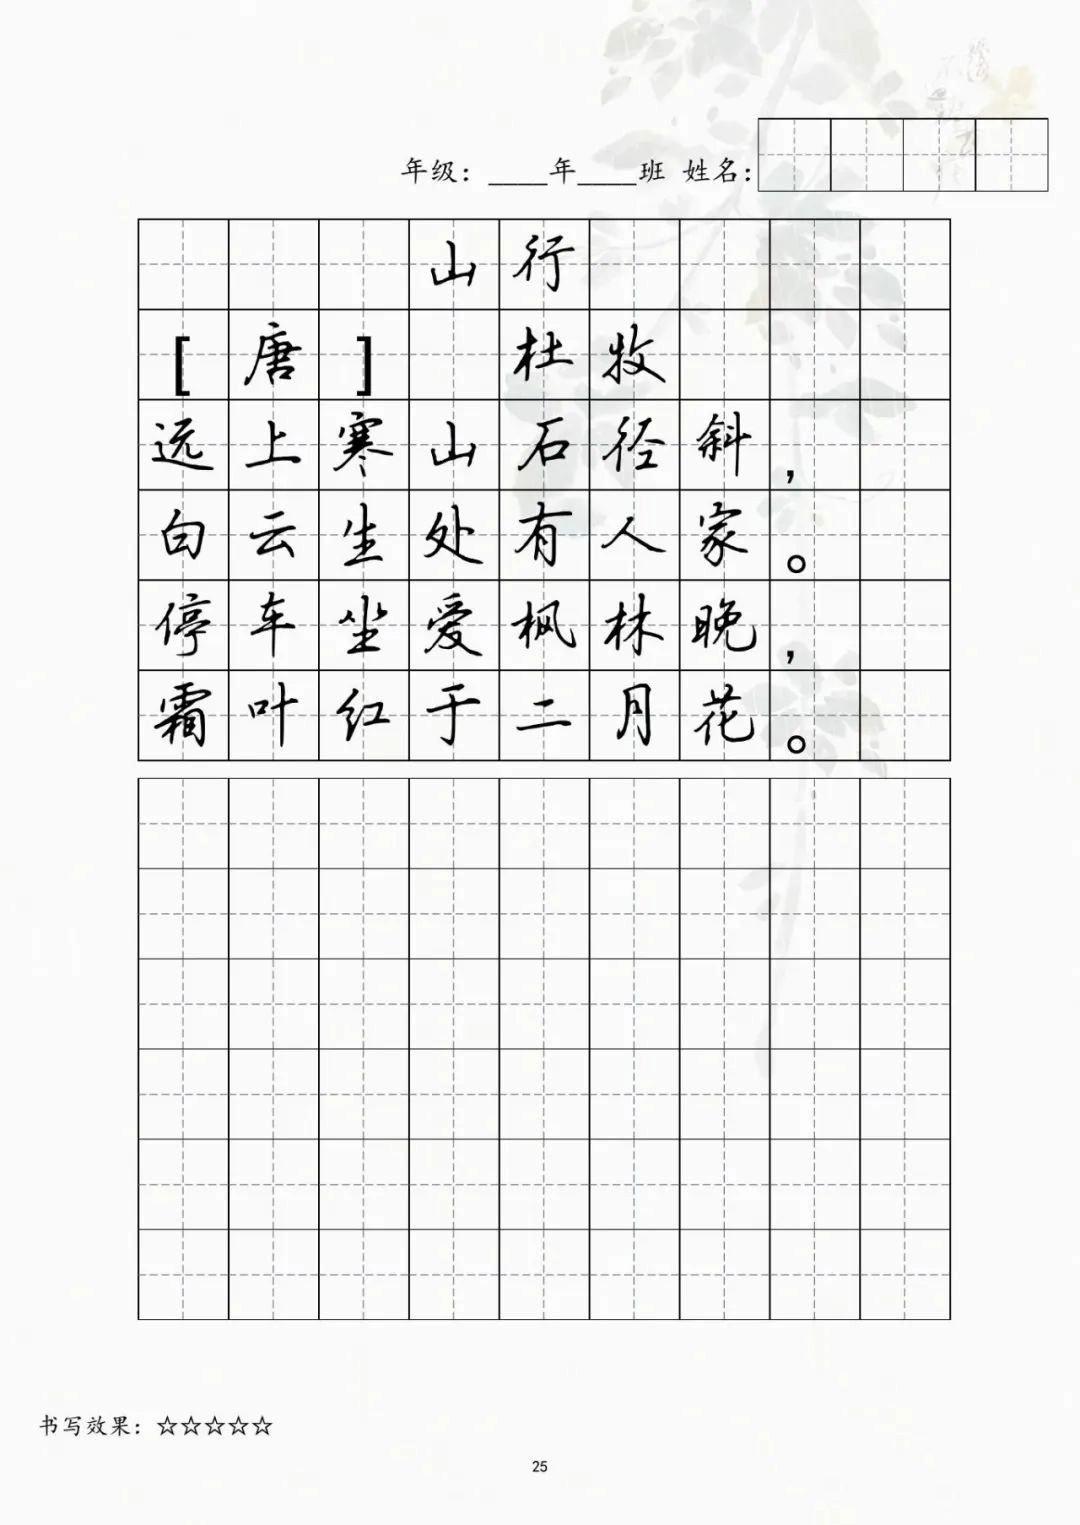 年级：____年____班 姓名：
山行
[唐] 杜牧
远上寒山石径斜，
白云生处有人家。
停车坐爱枫林晚，
霜叶红于二月花。
书写效果：☆☆☆☆☆
25